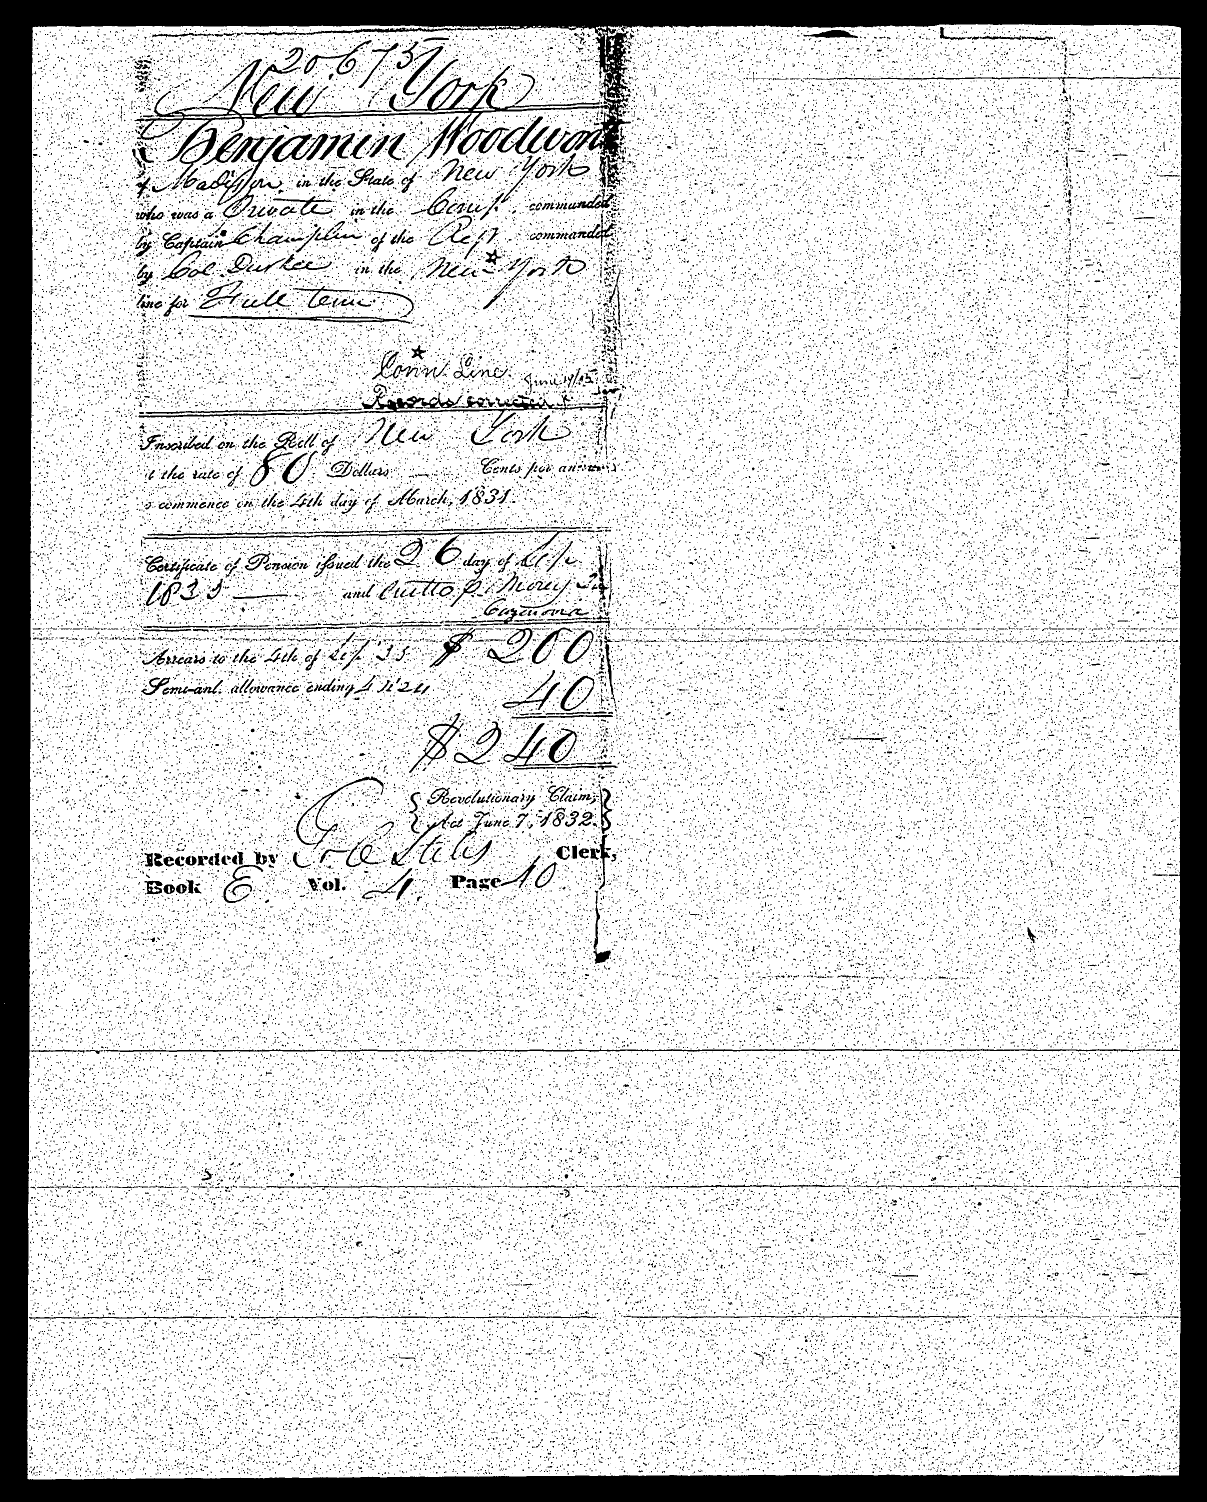 20675
New York
Benjamin Woodwor
of Madison in the State of New York
who was a Private in the Comp. commanded
by Captain Champlin of the Regt commanded
by Col. Durkee in the New York
line for Full term
Conn. Line.
June 19/05
Records corrected
Inscribed on the Roll of New York
t the rate of 80 Dollars — Cents per annum
o commence on the 4th day of March, 1831.
Certificate of Pension issued the 26 day of Sep.
1833 — and
Cazenovia
Arrears to the 4th of Sep. 33 $ 200
Semi-anl. allowance ending 40
$240
Revolutionary Claim,
Act June 7, 1832.
Recorded by Clerk,
Book E Vol. 4. Page 10